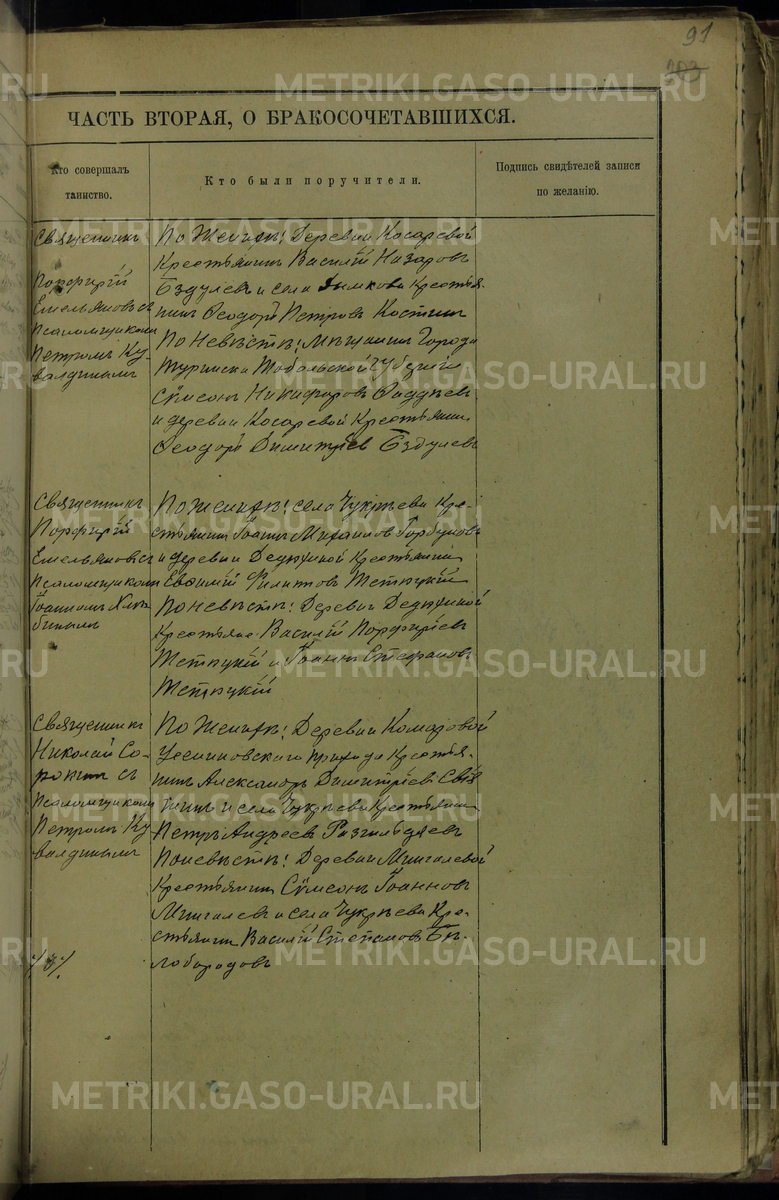 91
203
ЧАСТЬ ВТОРАЯ, О БРАКОСОЧЕТАВШИХСЯ.
Кто совершалъ
таинство.
Кто были поручители.
Подпись свидѣтелей записи
по желанію.
Священникъ
Порфирій
Емельяновъ съ
Псаломщикомъ
Петромъ Ку-
валдинымъ
По Женихѣ: Деревни Косаревой
Крестьянин Василій Назаровъ
Бздулевъ и села Дымкова Крестья-
нинъ Ѳеодоръ Петровъ Костинъ
По Невѣстѣ: Мѣщанинъ Города
Туринска Тобольской Губерніи
Сѵмеонъ Никифоровъ
и деревни Косаревой Крестьянин
Ѳеодоръ Димитріев Бздулевъ
Священникъ
Порфирій
Емельяновъ съ
Псаломщикомъ
Іоанномъ Хлѣ-
бинымъ
По Женихѣ: села Чукрѣева Кре-
стьянин Іоаннъ Михаиловъ Горбуновъ
и деревни Дедюхиной Крестьянинъ
Евѳимій Филиповъ Тетюцкій
По невѣстѣ: Деревни Дедюхиной
Крестьяне Василій Порфиріевъ
Тетюцкій и Іоаннъ Стефановъ
Тетюцкій
Священникъ
Николай Со-
рокинъ съ
Псаломщикомъ
Петромъ Ку
валдинымъ
По Женихѣ: Деревни Комаровой
Прихода Крестья-
нинъ Александръ Димитріевъ
и села Чукрѣева Крестьянин
Петръ Андреев Разгильдяевъ
По невѣстѣ: Деревни Мингалевой
Крестьянин Сѵмеонъ Іоанновъ
Мингалевъ и села Чукрѣева Кре-
стьянин Василій Степановъ Бѣ-
лобородовъ
METRIKI.GASO-URAL.RU